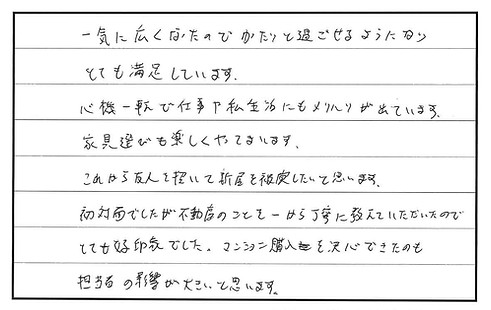 一気に広くなたのでゆたりと過ごせるようになり
とても満足しています。
心機一転で仕事や私生活にもメリハリが出ています。
家具選びも楽しくやてまいます。
これから友人を招いて新居を披露したいと思います。
初対面でしたが不動産のことを一から丁寧に教えていただいたので
とても好印象でした。マンション購入を決心できたのも
担当者の影響が大きいと思います。